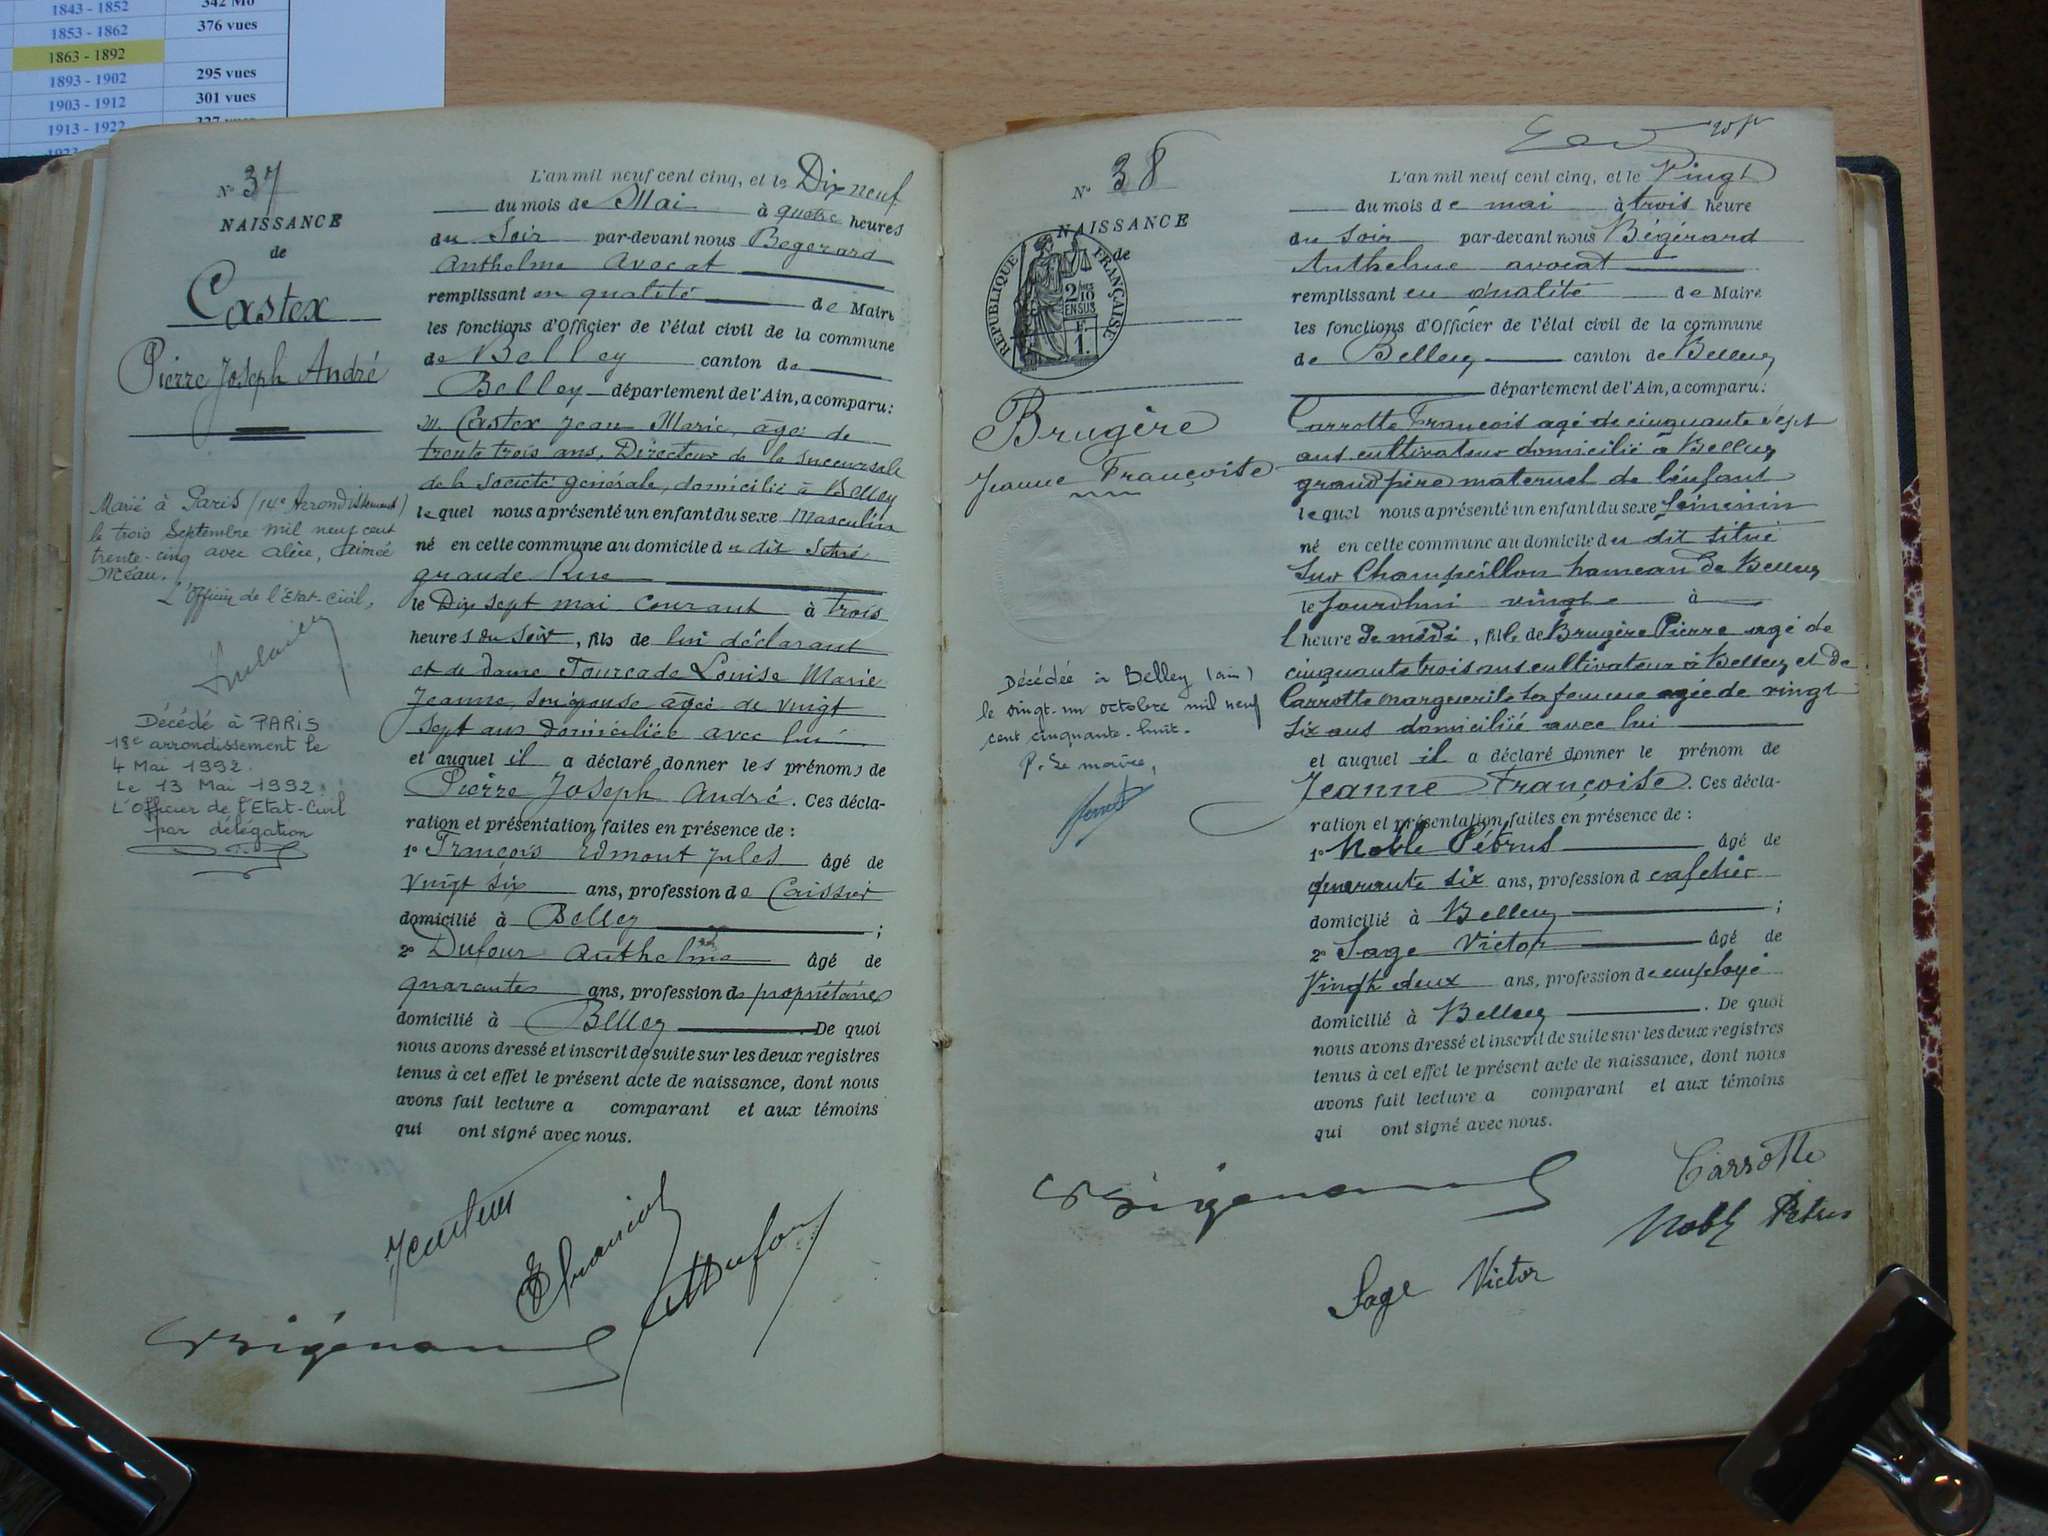 1843 - 1852 342 Mo
1853 - 1862 376 vues
1863 - 1892
1893 - 1902 295 vues
1903 - 1912 301 vues
1913 - 1922
N° 37
NAISSANCE
de
Castex
Pierre Joseph André
Marié à Paris (14e Arrondissement)
le trois Septembre mil neuf cent
trente-cinq avec Alice, Aimée
Méau.
L'Officier de l'Etat-civil,
Décédé à PARIS
18e arrondissement le
4 Mai 1992.
Le 13 Mai 1992.
L'Officier de l'Etat-Civil
par délégation
L'an mil neuf cent cinq, et le Dix neuf
du mois de Mai à quatre heures
du Soir par-devant nous Begerard
Anthelme Avocat
remplissant en qualité de Maire
les fonctions d'Officier de l'état civil de la commune
de Belley canton de
Belley département de l'Ain, a comparu:
M. Castex Jean Marie, âgé de
trente trois ans, Directeur de la succursale
de la Société générale, domicilié à Belley
lequel nous a présenté un enfant du sexe Masculin
né en cette commune au domicile du dit Situé
grande Rue
le Dix sept mai courant à trois
heures du Soir, fils de lui déclarant
et de dame Fourcade Louise Marie
Jeanne, son épouse agée de vingt
sept ans domiciliée avec lui
et auquel il a déclaré donner les prénoms de
Pierre Joseph André. Ces décla-
ration et présentation faites en présence de :
1° François Edmont Jules âgé de
Vingt six ans, profession de Caissier
domicilié à Belley ;
2° Dufour Anthelme âgé de
quarante ans, profession de propriétaire
domicilié à Belley De quoi
nous avons dressé et inscrit de suite sur les deux registres
tenus à cet effet le présent acte de naissance, dont nous
avons fait lecture a comparant et aux témoins
qui ont signé avec nous.
N° 38
NAISSANCE
de
RÉPUBLIQUE FRANÇAISE
2/10
EN SUS
1F.
Brugère
Jeanne Françoise
Décédée à Belley (ain)
le vingt-un octobre mil neuf
cent cinquante-huit.
P. Le maire,
L'an mil neuf cent cinq, et le Vingt
du mois de mai à trois heure
du soir par-devant nous Bégérard
Anthelme avocat
remplissant en qualité de Maire
les fonctions d'Officier de l'état civil de la commune
de Belley canton de Belley
département de l'Ain, a comparu:
Carrotte François agé de cinquante sept
ans cultivateur domicilié à Belley
grand père maternel de l'enfant
lequel nous a présenté un enfant du sexe féminin
né en cette commune au domicile du dit situé
sur Champeillon hameau de Belley
le jourdhui vingt à
l heure de midi, fille de Brugère Pierre agé de
cinquante trois ans cultivateur à Belley et de
Carrotte Marguerite sa femme agée de vingt
six ans domiciliée avec lui
et auquel il a déclaré donner le prénom de
Jeanne Françoise. Ces décla-
ration et présentation faites en présence de :
1° Noble Pétrus âgé de
quarante six ans, profession d cafetier
domicilié à Belley ;
2° Sage Victor âgé de
Vingt deux ans, profession de employé
domicilié à Belley . De quoi
nous avons dressé et inscrit de suite sur les deux registres
tenus à cet effet le présent acte de naissance, dont nous
avons fait lecture a comparant et aux témoins
qui ont signé avec nous.
Carrotte
Noble Pétrus
Sage Victor